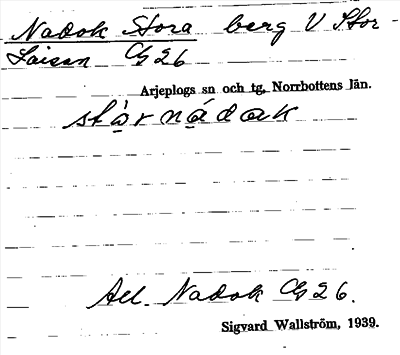 Nadok Stora berg V Stor-
Laisan Cg 26
Arjeplogs sn och tg, Norrbottens län.
stạ̊̀rnạ́dak
All. Nadok Cg 26.
Sigvard Wallström, 1939.